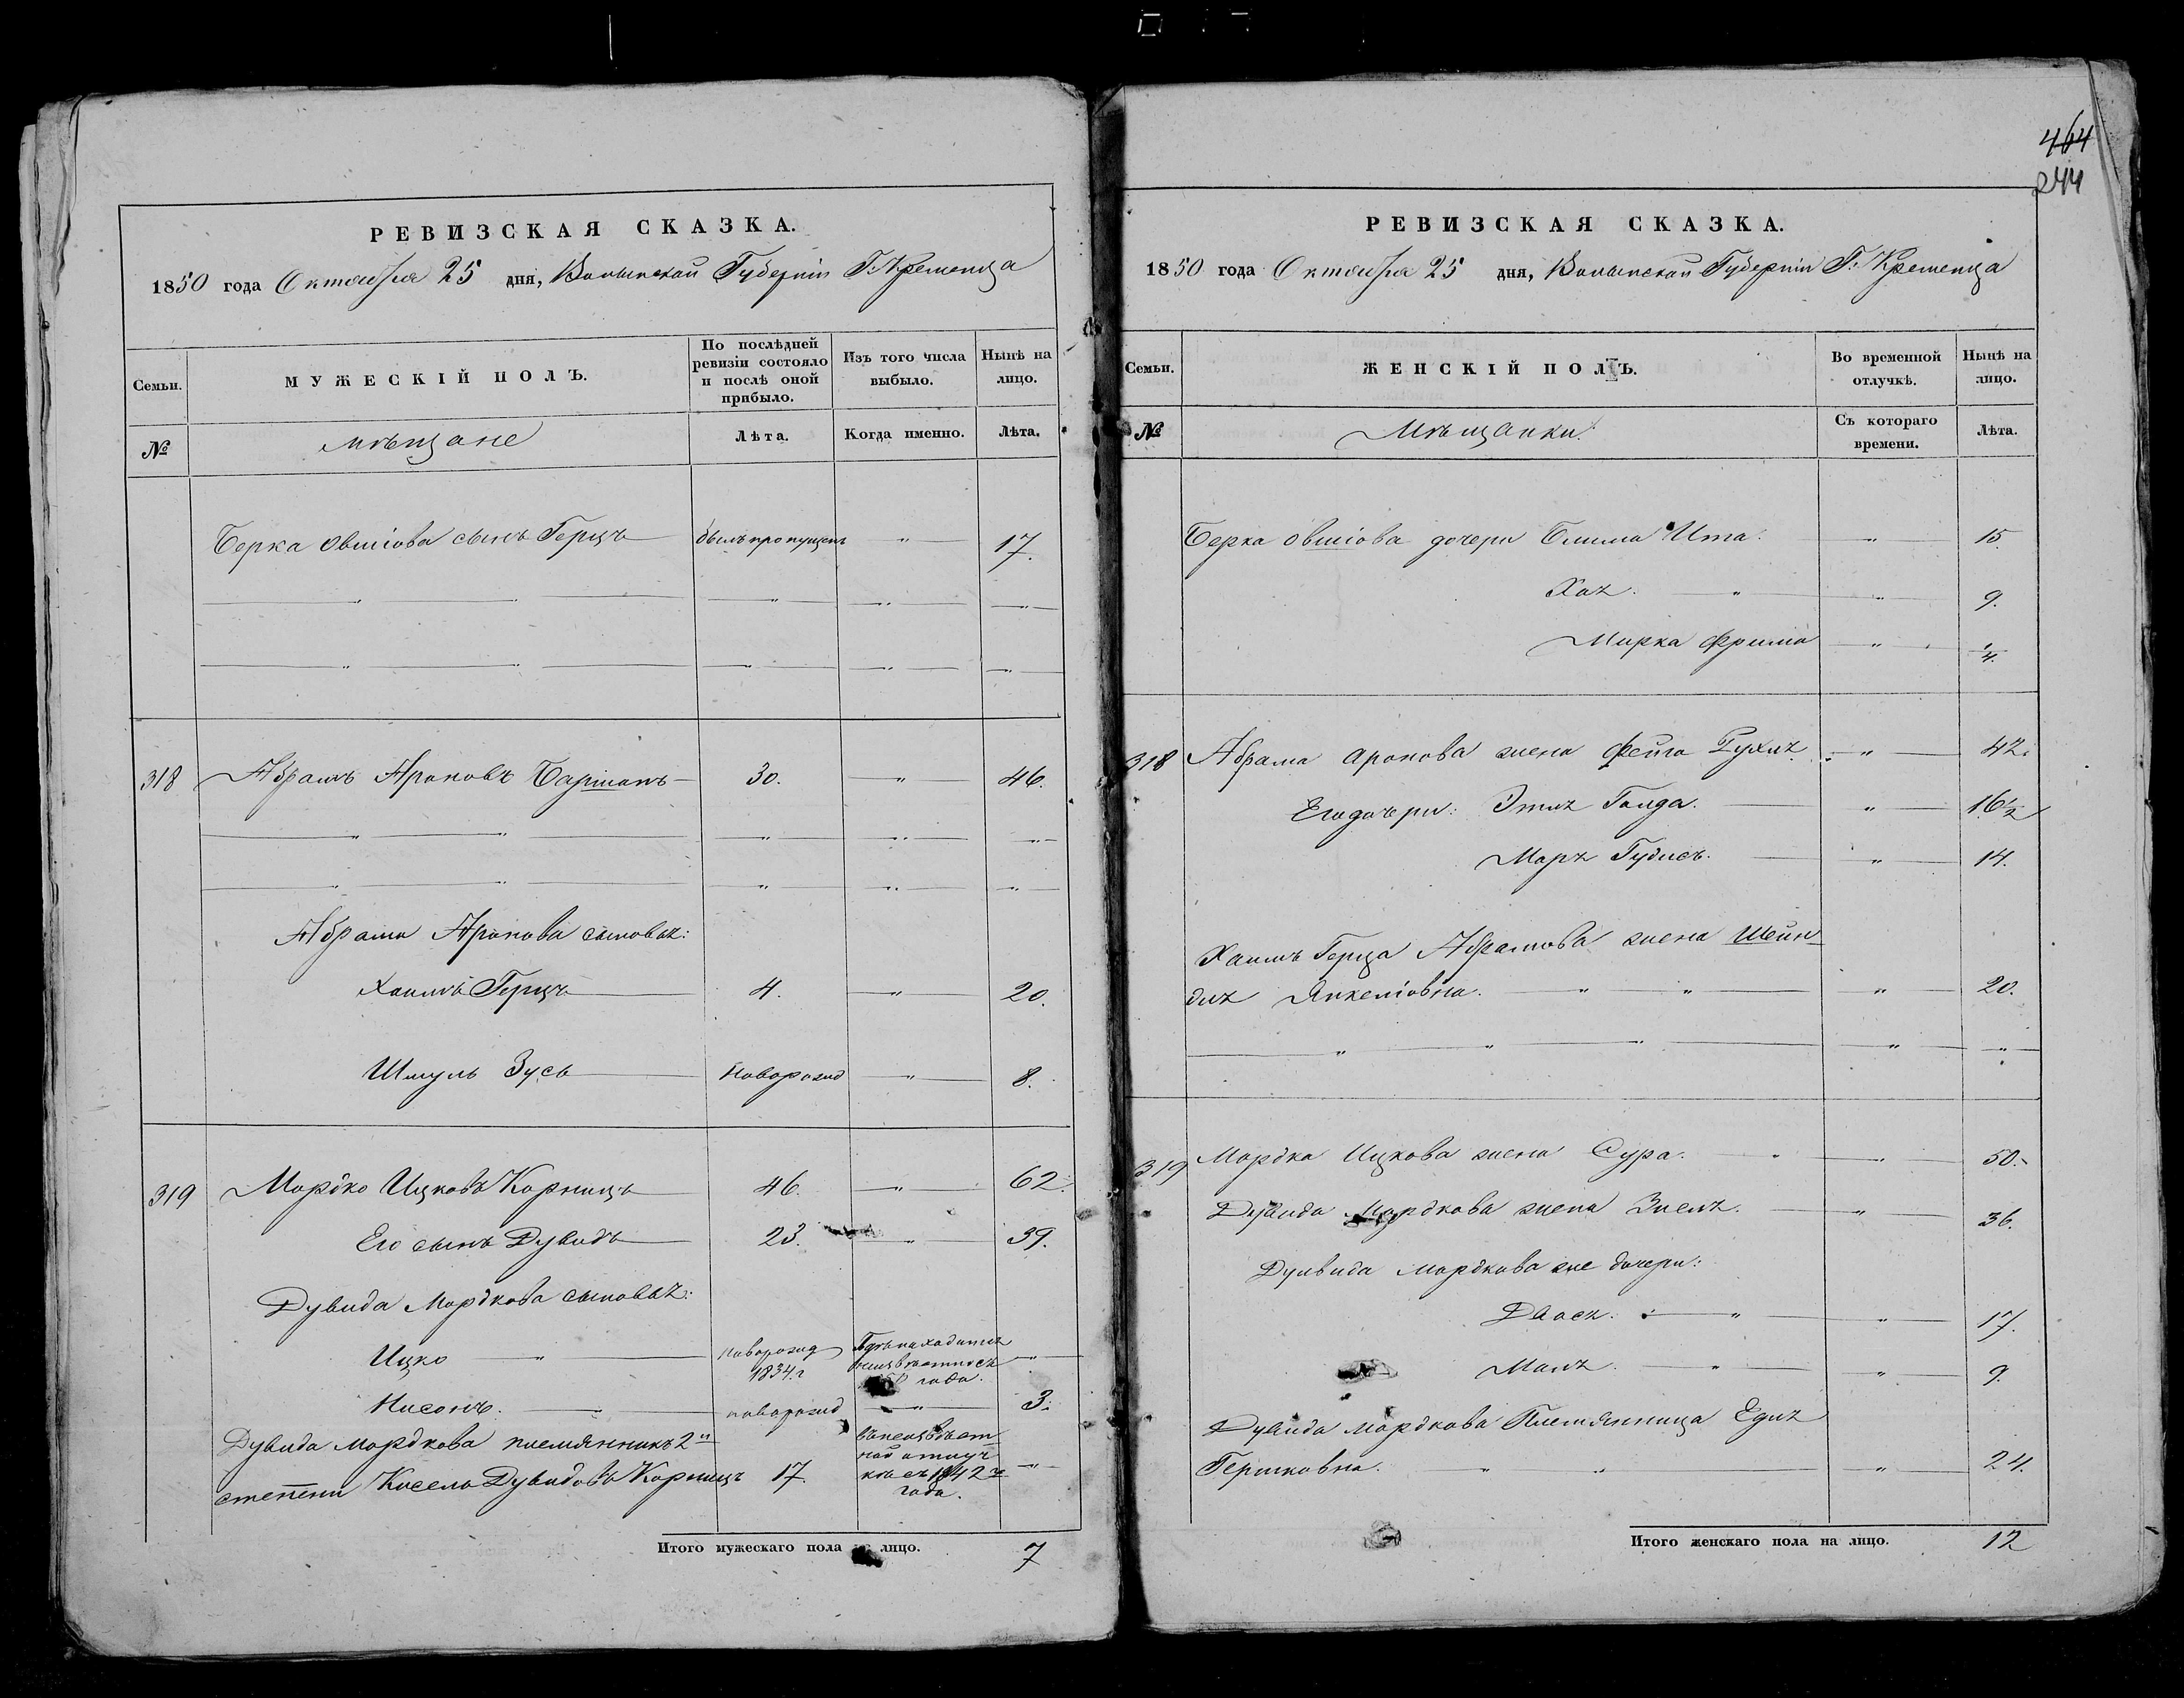 464
244
РЕВИЗСКАЯ СКАЗКА.
1850 года Октября 25 дня, Волынской Губерніи Г. Кременца
Семьи.
МУЖЕСКІЙ ПОЛЪ.
По послѣдней
ревизіи состояло
и послѣ оной
прибыло.
Изъ того числа
выбыло.
Нынѣ на
лицо.
№
мѣщане
Лѣта.
Когда именно.
Лѣта.
Берка Овшіова сынъ Герцъ былъ пропущенъ " 17.
318 Абрамъ Ароновъ Баршакъ 30. " 46.
Абрама Аронова сыновья:
Хаимъ Герцъ 4. " 20.
Шмуль Зусь новорожд " 8.
319 Мордко Ицковъ Корницъ 46. " 62.
Его сынъ Дувидъ 23. " 39.
Дувида Мордкова сыновья:
Ицко " новорожд
1834.г
года.
Нисонъ. новорожд " 3.
Дувида Мордкова племянникъ 2й
степени Кисель Дувидовъ Корницъ 17.
въ неизвѣст
ной отлуч
кѣ съ 1842го
года.
"
Итого мужескаго пола лицо. 7
РЕВИЗСКАЯ СКАЗКА.
1850 года Октября 25 дня, Волынской Губерніи Г: Кременца
Семьи.
ЖЕНСКІЙ ПОЛЪ.
Во временной
отлучкѣ.
Нынѣ на
лицо.
№
Мѣщанки.
Съ котораго
времени.
Лѣта.
Берка Овшіова дочери Блима Ита. " 15.
Хая. " " 9.
Мирка Фрима " 1/4.
318 Абрама Аронова жена Фейга Рухля " 42.
Его дочери: Этля Голда. " 16 1/2
Маря Гудись. " 14.
Хаимъ Герца Абрамова жена Шейн-
для Янкеліовна. " " " 20.
319 Мордка Ицкова жена Сура. " " 50.
Дувида Мордкова жена Знеля. " 36.
Дувида Мордкова же дочери:
Двося. " " 17.
Маля. " " 9.
Дувида Мордкова Племянница Едля
Гершковна. " " " 24.
Итого женскаго пола на лицо. 12